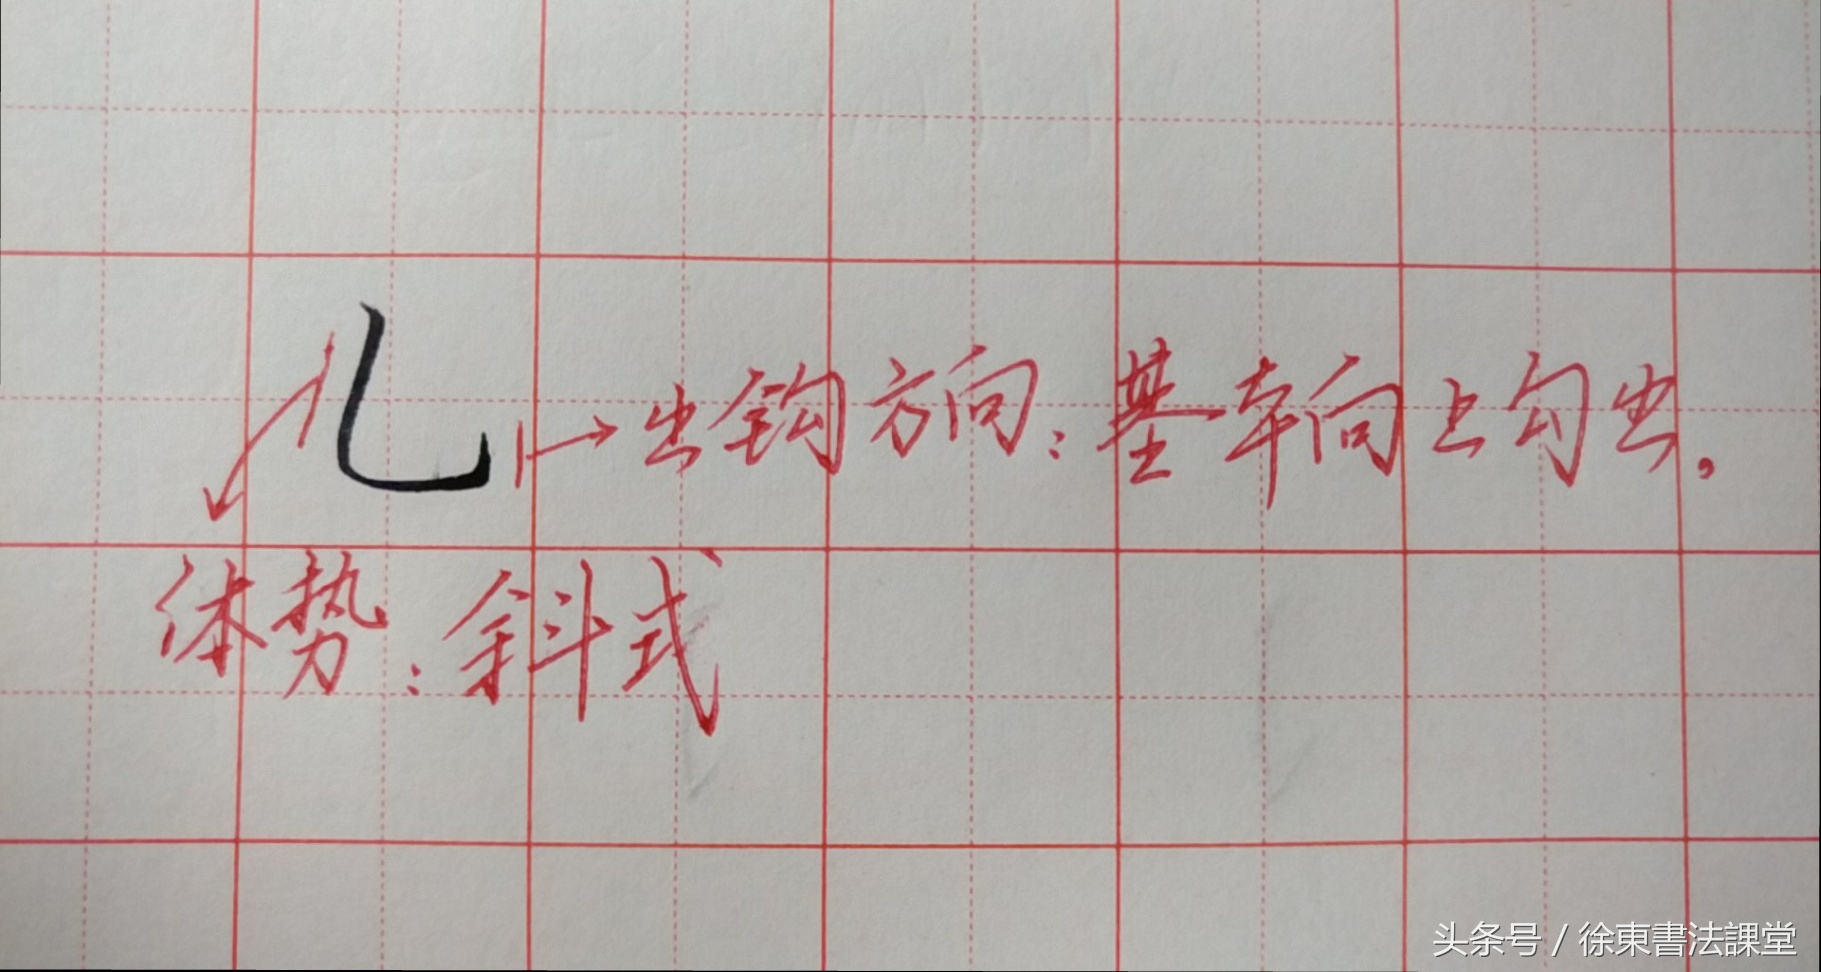 乚
出钩方向：基本向上勾出。
体势：斜式
头条号 / 徐東書法課堂